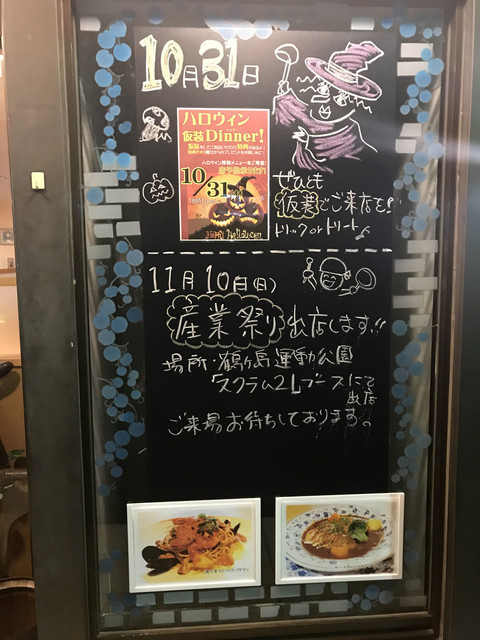 10月31日
ハロウィン
仮装Dinner!
ハロウィン特別メニューもご用意!
10/31
HAPPY HALLOWEEN!
ぜひとも
仮装でご来店を!!
トリックorトリート♪
11月10日(日)
産業祭り出店します!!
場所:鶴ヶ島運動公園
出店
ご来場お待ちしております。